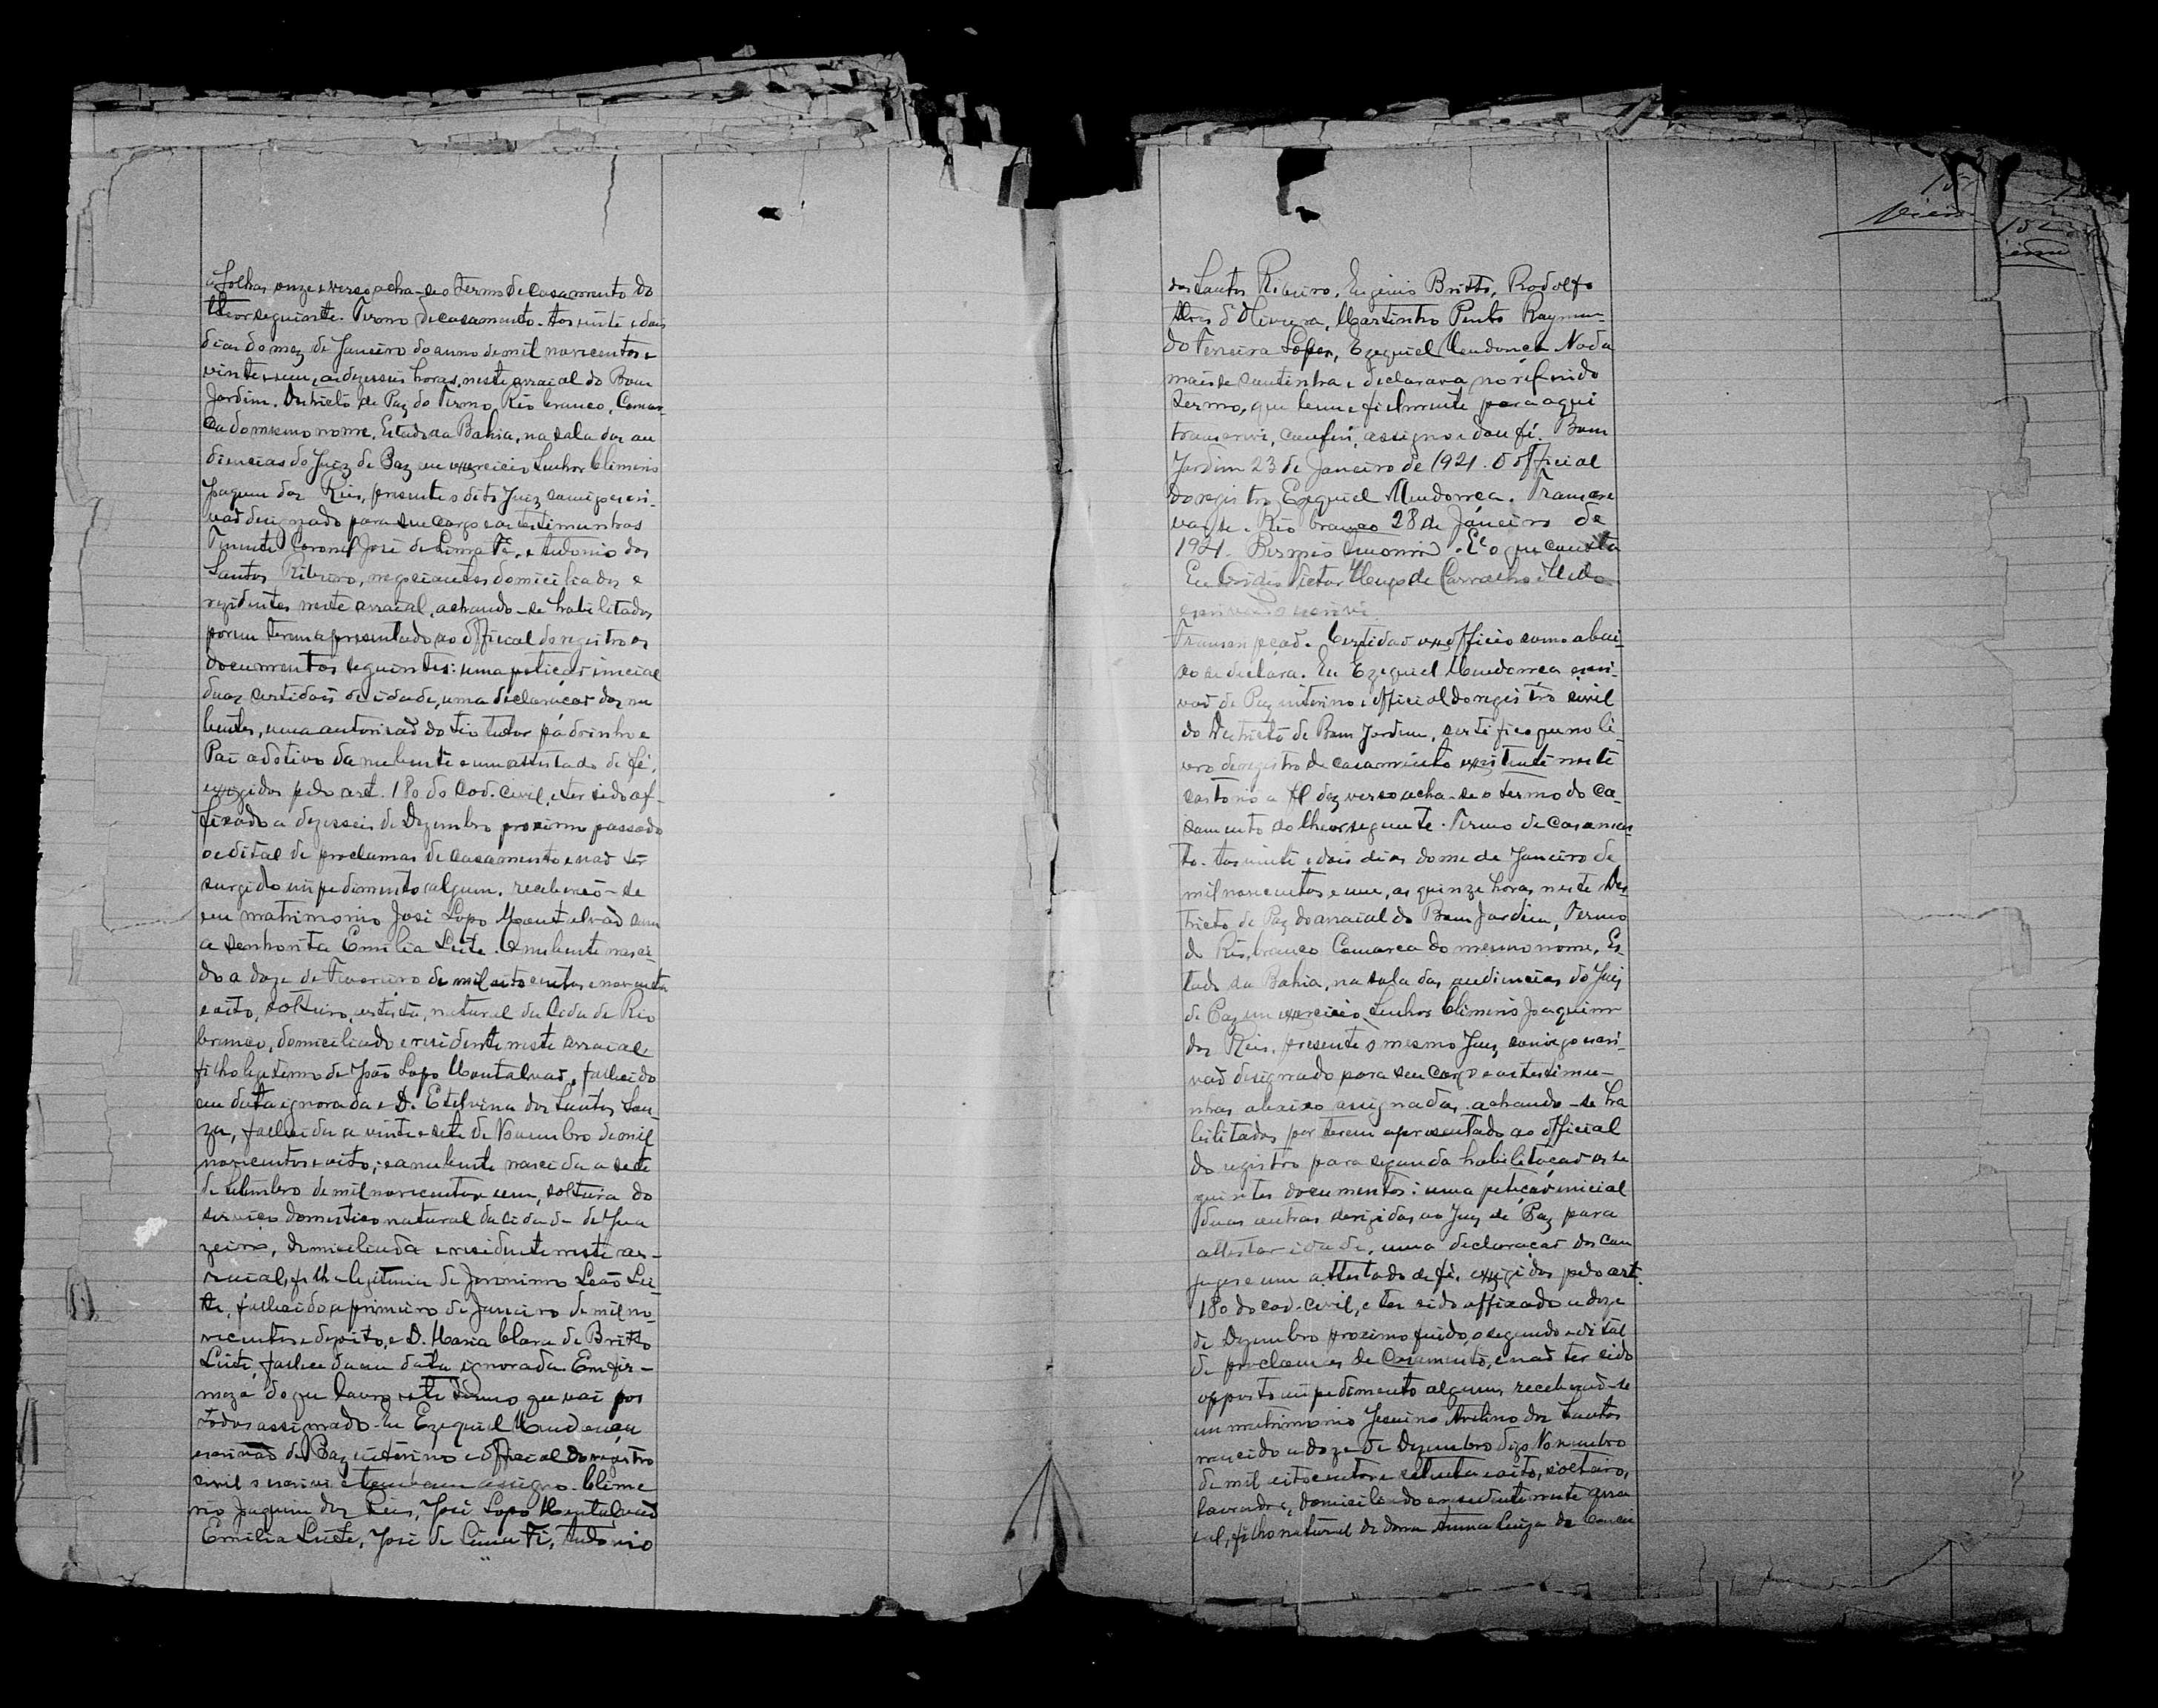 a folhas onze e verso acha-se o termo de casamento do
theor seguinte. Termo de casamento. Aos vinte e dois
dias do mez de Janeiro do anno de mil novecentos e
vinte e um, as dezesseis horas, neste arraial do Bom
Jardim. Districto de Paz do Termo Rio branco, Comar-
ca do mesmo nome, Estado da Bahia, na sala das au
diencias do Juiz de Paz em exercicio Senhor Climerio
Joaquim dos Reis, presente o dito Juiz comigo escri-
vaõ designado para seu cargo e as testimunhas
Tenente Coronel José de Lima Fé, e Antonio dos
Santos Ribeiro, negociantes domiciliados e
rezidentes neste arraial, achando-se habilitados
porem terem apresentado ao official do registro os
documentos seguintes: uma petiçaõ inicial
duas certidoẽs de idade, uma declaraçaõ dos nu
bentes, uma autorisaõ do tio tutor pádrinho e
Pai adotivo da nubente e um attestado de fé,
exigidos pelo art. 180 do Cod. Civil, e ter sido af-
fixado a dezesseis de Dezembro proximo passado
o edital de proclamas de casamento e naõ ter
surgido impedimento algum, receberaõ-se
em matrimonio José Lopo Montalvaõ com
a senhorita Emilia Leite. O nubente nasci-
do a doze de Fevereiro de mil oito centos e noventa
e oito, solteiro, artista, natural da Cidade Rio
branco, domiciliado e residente neste arraial
filho legitimo de João Lopo Montalvaõ, fallecido
em data ignorada e D. Etelvina dos Santos Sou-
za, fallecida a vinte e sete de Novembro de mil
novecentos e oito; e a nubente nascida a sete
de Setembro de mil novecentos e um, solteira do
serviço domestico natural da Cidade de Jua
zeiro, domiciliada e residente neste ar-
raial, filha legitima de Jeronimo Leão Lei-
te, fallecido a primeiro de Janeiro de mil no-
vecentos e dezoito, e D. Maria Clara de Britto
Leite, fallecida em data ignorada. Em fir-
meza do que lavro este termo que vai por
todos assignado. Eu Ezequiel Mendonça
escrivaõ de Paz interino e official do registro
civil o escrivi e tambem assigno. Clime
rio Joaquim dos Reis, José Lopo Montalvaõ
Emilia Leite, José de Lima Fé, Antonio
dos Santos Ribeiro, Eugenio Britto, Rodolfo
Alves d'Oliveira, Martinho Pento Raymun-
do Ferreira Lopes, Ezequiel Mendonça Nada
mais se continha e declarava no referido
termo, que bem e fielmente para aqui
transcrivi, conferi, assigno e dou fé. Bom
Jardim 23 de Janeiro de 1921. O official
do registro Ezequiel Mendonça. Transcre
va-se. Rio branco 28 de Janeiro de
1921. E' o que consta
Eu Victor Hugo de Carvalho
escrivaõ o escrivi
Transcripçaõ. Certidaõ ex-officio como abai-
xo se declara. Eu Ezequiel Mendonça escri-
vaõ de Paz interino e official do registro civil
do Districto de Bom Jardim, certifico que no li-
vro de registro de casamento existente neste
cartorio a fl dez verso acha-se o termo do ca-
samento do theor seguinte. Termo de casamen-
to. Aos vinte e dois dias do me de Janeiro de
mil novecentos e um, as quinze horas neste Des
tricto de Paz do arraial do Bom Jardim, Termo
do Rio, branco Comarca do mesmo nome, Es-
tado da Bahia, na sala das audiencias do Juiz
de Paz em exercicio, Senhor Climerio Joaquim
dos Reis, presente o mesmo Juiz, comigo escri-
vaõ designado para seu cargo e as testimu-
nhas abaixo assignadas, achando-se ha
bilitados por terem apresentado ao official
do registro para segunda habilitaçaõ os se
guintes documentos: uma petiçaõ inicial
duas outras derigidas ao Juiz de Paz para
attestar idade, uma declaraçaõ dos con
juges e um attestado de fé, exigidos pelo art.
180 do cod. civil, e ter sido affixado a doze
de Dezembro proximo findo, o segundo edital
de proclamas de Casamento, e naõ ter sido
opposto impedimento algum, receberaõ-se
em matrimonio Jesuino Avelino dos Santos
nascido a doze de Dezembro digo Novembro
de mil oitocentos e setenta e oito, solteiro,
lavrador, domiciliado e residente neste arra
ial, filho natural de dona Anna Luiza da Concei